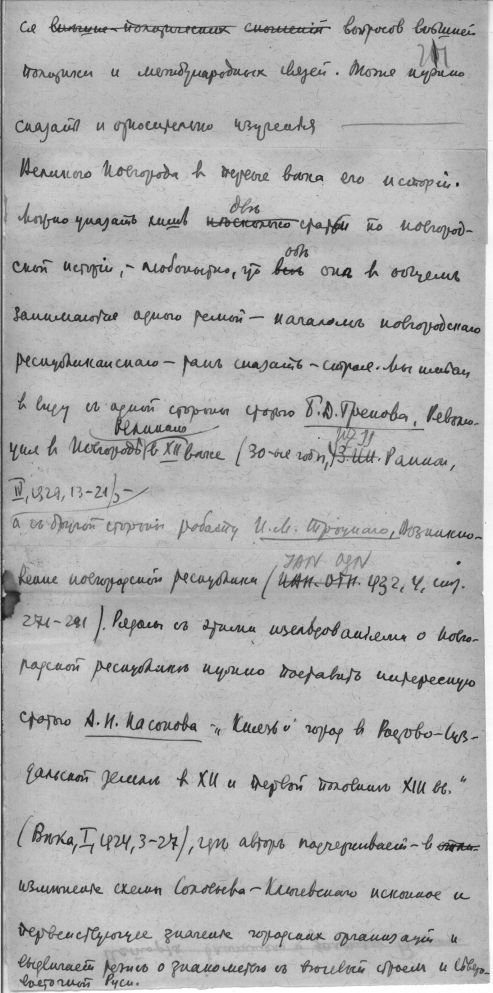 ся ~~внѣшне-политическихъ сношеній~~ вопросов внѣшней
211
политики и международных связей. Тоже нужно
сказать и относительно изученія
Великого Новгорода в первые вѣка его исторіи.
Можно указать лишь ~~нѣсколько~~ двѣ статьи по новгород-
ской исторіи, – любопытно, что ~~всѣ~~ обѣ онѣ в общемъ
занимаются одною темой – началомъ новгородскаго
республиканскаго – такъ сказать – строя. Мы имѣем
в виду съ одной стороны статью Б. Д. Грекова, Револю-
ція в Новгородѣ Великомъ в XII вѣке (30-ые годы, ~~З. ИИ.~~ Ранион,
IV, 1929, 13-21), –
а съ другой стороны работу И. М. Троцкаго, Возникно-
JAN OGN
веніе новгородской республики (~~ИАН. ОГН.~~ 1932, 4, стр.
271-291). Рядомъ съ этими изслѣдователями о новго-
родской республикѣ нужно поставить интересную
статью А. Н. Насонова – „Князь и город в Ростово-Суз-
дальской землѣ в XII и первой половинѣ XIII вв."
(Вѣка, I, 1924, 3-27), гдѣ авторъ подчеркивает – в
измѣненіе схемы Соловьева – Ключевскаго исконное и
первенствующее значеніе городских организацій и
выдвигает тезисъ о знакомствѣ съ вѣчевым строем и Сѣверо-
восточной Руси.